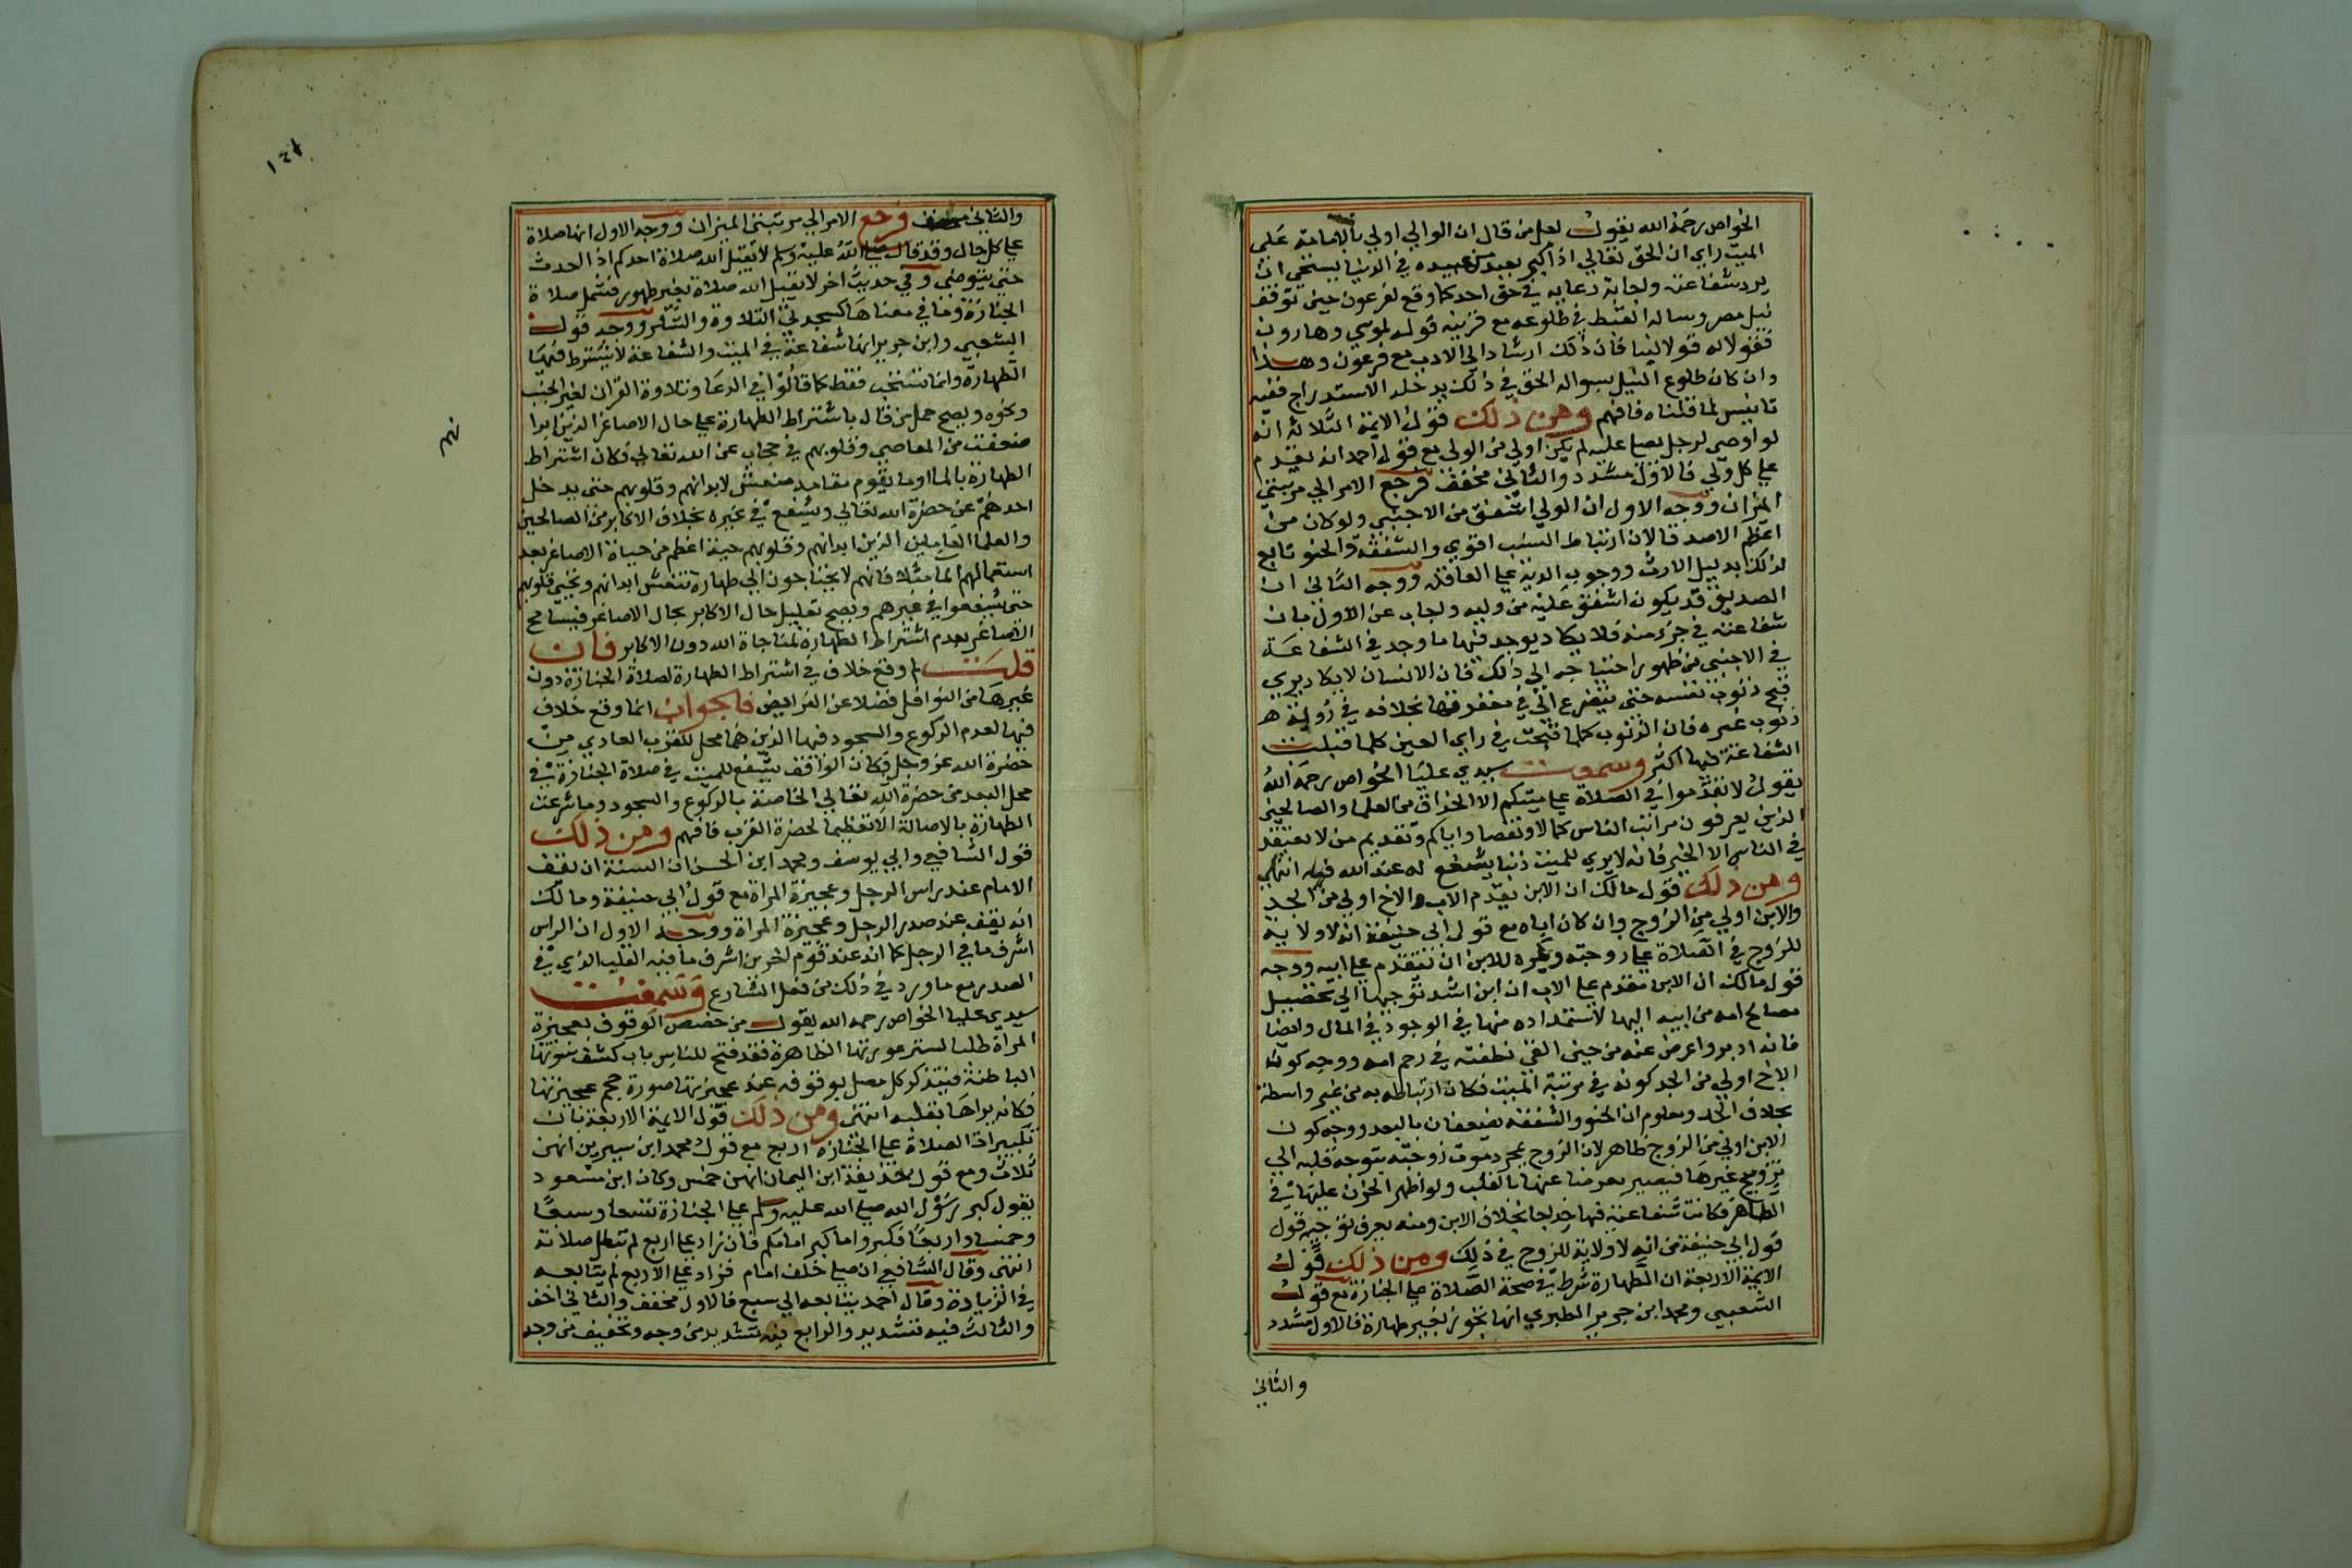 الخواص رحمه الله يقول لعل من قال ان الوالي اولي بالامامة على
الميت راي ان الحق تعالي اذا كبر بعبد من عبيده في الدنيا يستحي ان
يرد شفاعته واجابة دعايه في حق احد كما وقع لفرعون حين توقف
نيل مصر وساله القبط في طلوعه مع قرينة قوله لموسي وهارون
فقولا له قولا لينا فان ذلك ارشاد الي الادب مع فرعون وهذا
وان كان طلوع النيل بسواله الحق في ذلك يدخله الاستدراج ففيه
تانيس لما قلناه فافهم ومن ذلك قول الايمة الثلاثة انه
لو اوصي لرجل يصلي عليه لم يكن اولي من الولي مع قول احمد انه يقدم
علي كل ولي فالاول مشدد والثاني مخفف فرجع الامر الي مرتبتي
الميزان ووجه الاول ان الولي اشفق من الاجنبي ولو كان من
اعظم الاصدقا لان ارتباط النسب اقوي والشفقة والحنو تابع
لذلك بدليل الارث ووجوب الدية علي العاقلة ووجه الثاني ان
الصديق قد يكون اشفق عليه من وليه واجاب عن الاول بان
شفاعته في جزء منه فلا يكاد يوجد فيها ما وجد في الشفاعة
في الاجنبي من ظهور احتياجه الي ذلك فان الانسان لا يكاد يري
قبح ذنوب نفسه حتي يتضرع الي في مغفرتها بخلافه في رويته
ذنوب غيره فان الذنوب كلما قبحت في راي العين كلما قبلت
الشفاعة فيها اكثر وسمعت سيدي عليا الخواص رحمه الله
يقول لا تقدموا في الصلاة علي ميتكم الا الحذاق من العلما والصالحين
الذين يعرفون مراتب الناس كمالا ونقصا واياكم وتقديم من لا يعتقد
في الناس الا الخير فانه لا يري للميت ذنبا يشفع له عند الله فيه انتهي
ومن ذلك قول مالك ان الابن يقدم الاب والاخ اولي من الجد
والابن اولي من الزوج وان كان اباه مع قول ابي حنيفة انه لا ولاية
للزوج في الصلاة علي زوجته ويكره للابن ان يتقدم علي ابيه ووجه
قول مالك ان الابن مقدم علي الاب ان ابن اشد توجها الي تحصيل
مصالح امه من ابيه اليها لاستمداده منها في الوجود في المال وايضا
فانه ادبر واعرض عنه من حين القي نطفته في رحم امه ووجه كون
الاخ اولي من الجد كونه في مرتبة الميت فكان ارتباطه به من غير واسطة
بخلاف الجد ومعلوم ان الحنو والشفقة يضعفان بالبعد ووجه كون
الابن اولي من الزوج ظاهر لان الزوج بمجرد موت زوجته يتوجه قلبه الي
تزويج غيرها فيصير معرضا عنها بالقلب ولو اظهر الحزن عليها في
الظاهر فكانت شفاعته فيها خداجا بخلاف الابن ومنه يعرف توجيه قول
قول ابي حنيفة من انه لا ولاية للزوج في ذلك ومن ذلك قول
الايمة الاربعة ان الطهارة شرط في صحة الصلاة علي الجنازة مع قول
الشعبي ومحمد ابن جرير الطبري انها تجوز بغير طهارة فالاول مشدد
والثاني
والثاني مخفف فرجع الامر الي مرتبتي الميزان ووجه الاول انها صلاة
علي كل حال وقد قال صلي الله عليه وسلم لا يقبل الله صلاة احدكم اذا احدث
حتي يتوضي وفي حديث اخر لا يقبل الله صلاة بغير طهور فشمل صلاة
الجنازة وما في معناها كسجدتي التلاوة والشكر ووجه قول
الشعبي وابن جرير انها شفاعة في الميت والشفاعة لا يشترط فيها
الطهارة وانما تستحب فقط كما قالوا في الدعا وتلاوة القران لغير الجنب
ونحوه ويصح حمل من قال باشتراط الطهارة علي حال الاصاغر الذين ابدا
ضعفت من المعاصي وقلوبهم في حجاب عن الله تعالي فكان اشتراط
الطهارة بالما او ما يقوم مقامه منعش لابدانهم وقلوبهم حتي يدخل
احدهم حضرة الله تعالي ويشفع في غيره بخلاف الاكابر من الصالحين
والعلما العاملين الذين ابدانهم وقلوبهم حية اعظم من حياة الاصاغر بعد
استعمالهم الما مثلا فانهم لا يحتاجون الي طهارة تنعش ابدانهم وتحيي قلوبهم
حتي يشفعوا في غيرهم ويصح تعليل حال الاكابر بحال الاصاغر فيسامح
الاصاغر بعدم اشتراط الطهارة لمناجاة الله دون الاكابر فان
قلت لم وقع خلاف في اشتراط الطهارة لصلاة الجنازة دون
غيرها من النوافل فضلا عن الفرايض فالجواب انما وقع خلاف
فيها لعدم الركوع والسجود فيها الذين هما محل للقرب العادي من
حضرة الله عز وجل فكان الواقف يشفع للميت في صلاة الجنازة في
محل البعد من حضرة الله تعالي الخاصة بالركوع والسجود وما شرعت
الطهارة بالاصالة الا تعظيما لحضرة القرب فافهم ومن ذلك
قول الشافعي وابي يوسف ومحمد ابن الحسن ان السنة ان يقف
الامام عند راس الرجل وعجيزة المراة مع قول ابي حنيفة ومالك
انه يقف عند صدر الرجل وعجيزة المراة ووجه الاول ان الراس
اشرف ما في الرجل كما انه عند قوم اخرين اشرف ما فيه القلب الذي في
الصدر مع ما ورد في ذلك من فعل الشارع وسمعت
سيدي عليا الخواص رحمه الله يقول من خصص الوقوف بعجيزة
المراة طلبا لستر عورتها الظاهرة فقد فتح للناس باب كشف سوتها
الباطنة فيتذكر كل مصل بوقوفه عند عجيزتها صورة حجم عجيزتها
فكانه يراها بقلبه انتهي ومن ذلك قول الايمة الاربعة بان
تكبيرات الصلاة علي الجنازة اربع مع قول محمد ابن سيرين انهن
ثلاث ومع قول حذيفة ابن اليمان انهن خمس وكان ابن مسعود
يقول كبر رسول الله صلي الله عليه وسلم علي الجنازة تسعا وسبعا
وخمسا واربعا فكبروا ما كبر امامكم فان زاد علي اربع لم تبطل صلاته
انتهي وقال الشافعي ان صلي خلف امام فزاد علي الاربع لم يتابعه
في الزيادة وقال احمد يتابعه الي سبع فالاول مخفف والثاني اخف
والثالث فيه تشديد والرابع فيه تشديد من وجه وتخفيف من وجه